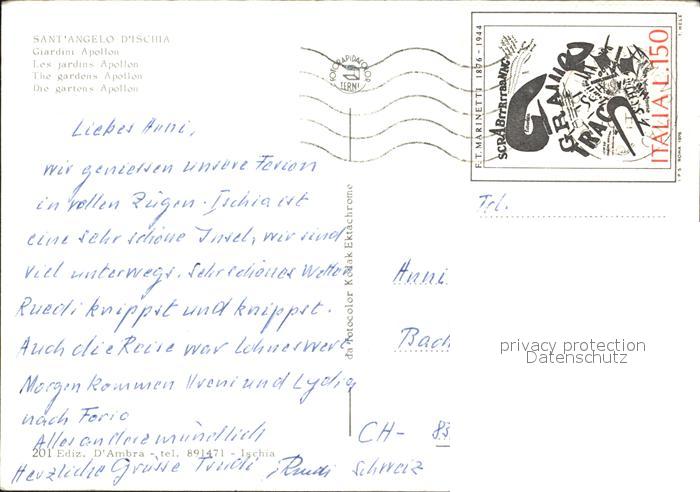 SANT'ANGELO D'ISCHIA
Giardini Apollon
Les jardins Apollon
The gardens Apollon
Die gärten Apollon
Liebes Anni,
wir geniessen unsere Ferien
in vollen Zügen. Ischia ist
eine sehr schöne Insel, wir sind
viel unterwegs. Sehr schönes Wetter
Ruedi knippst und knippst.
Auch die Reise war lohneswert
Morgen kommen Vreni und Lydia
nach Forio
Alles andere mündlich
201 Ediz. D'Ambra - tel. 891471 - Ischia
Herzliche Grüsse Trudi Ruedi
da Fotocolor Kodak Ektachrome
FOTORAPIDACOLOR
TERNI
F. T. MARINETTI 1876 - 1944
SCRABrrRrraaNNG
GRAAAG
TRAC
ITALIA L.150
I.P.S. ROMA 1976
Frl.
Anni
Bach
CH- 88
Schweiz
privacy protection
Datenschutz